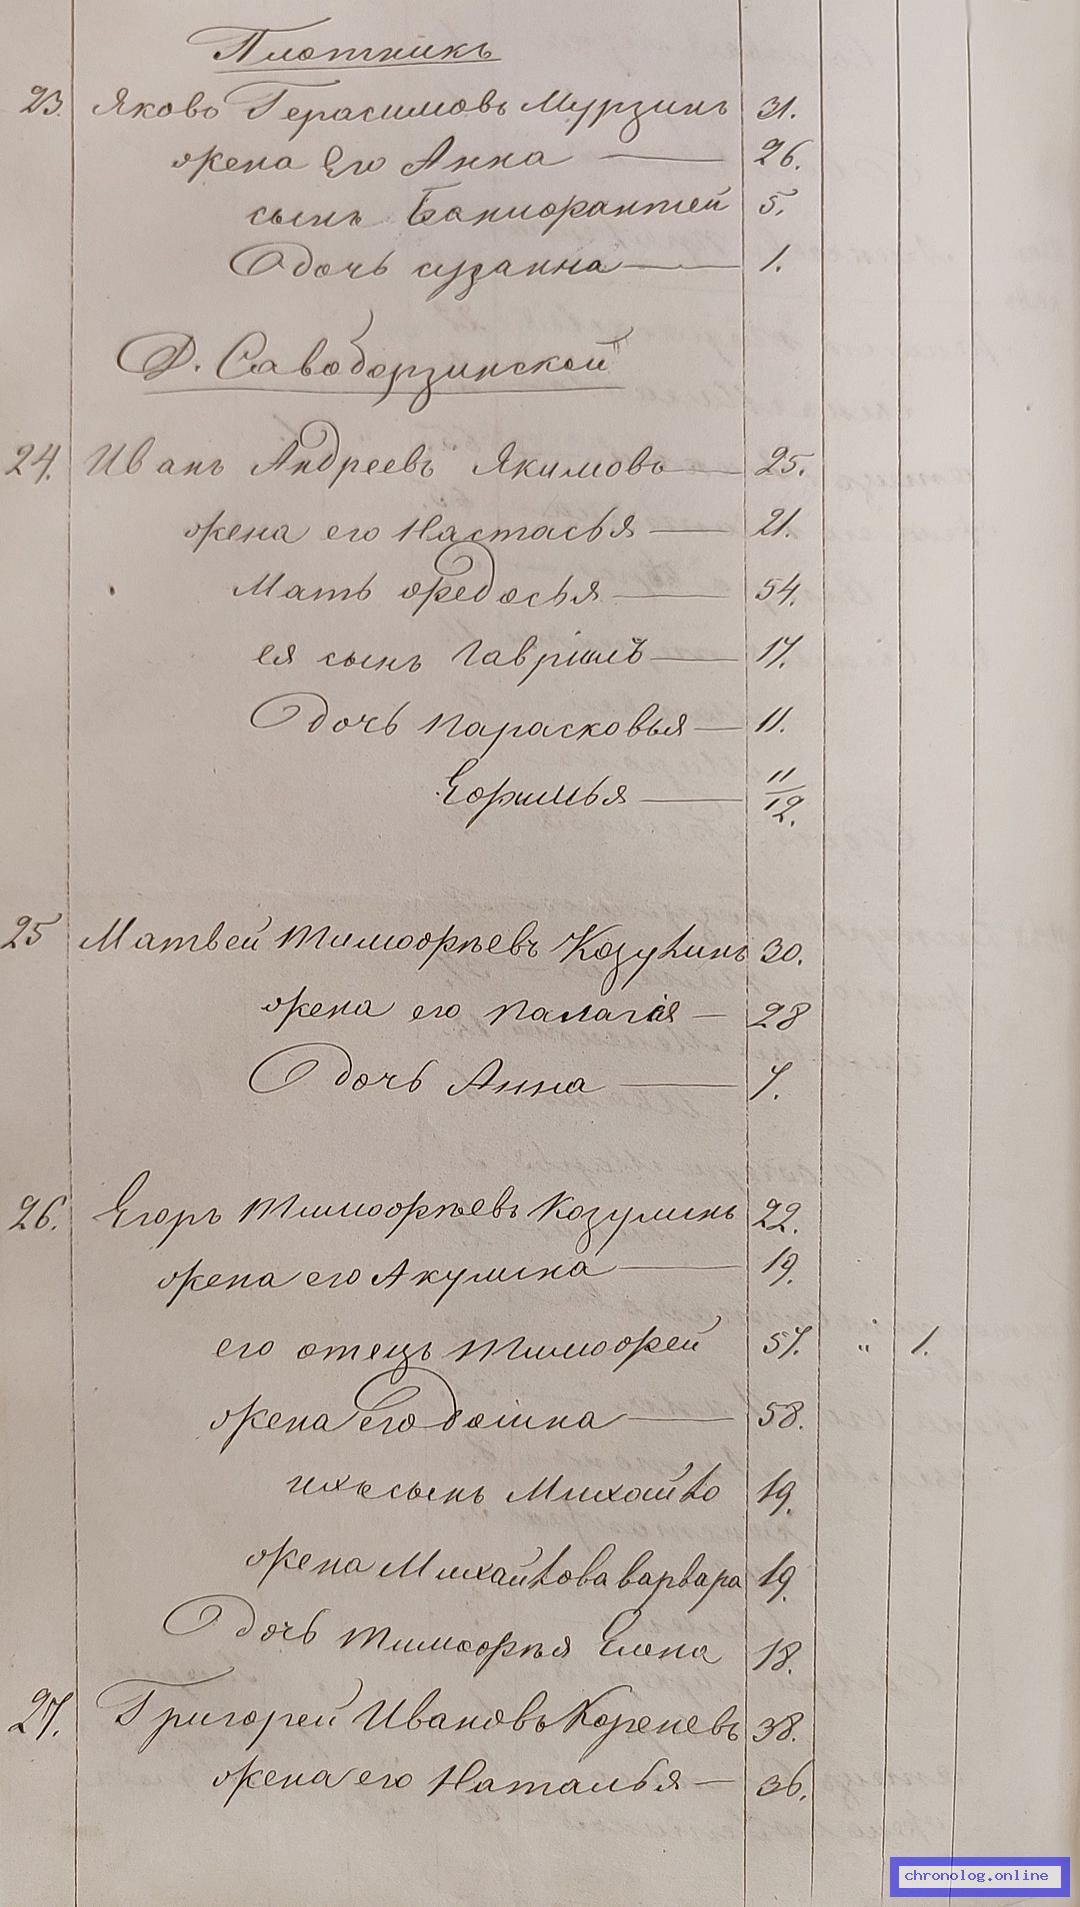 Плотникъ
23. Яковъ Герасимовъ Мурзинъ 31.
жена Его Анна — 26.
сынъ Банифантей 5.
дочь сузанна — 1.
Д. Савоборзинской
24. Иванъ Андреевъ Якимовъ — 25.
жена его Настасья — 21.
Мать федосья — 54.
ея сынъ Гаврiилъ — 17.
дочь Парасковья — 11.
Ефимья — 11/12.
25 Матвей Тимофѣевъ Козулинъ 30.
жена его Палагiя — 28
дочь Анна — 7.
26. Егоръ Тимофѣевъ Козулинъ 22.
жена его Акулина — 19.
его отецъ Тимофей 57. " 1.
жена Его домна — 58.
ихъ сынъ Михайло 19.
жена Михайлова варвара 19.
дочь Тимофѣя Елена 18.
27. Григорей Ивановъ Кореневъ 38.
жена его Наталья — 36.
chronolog.online